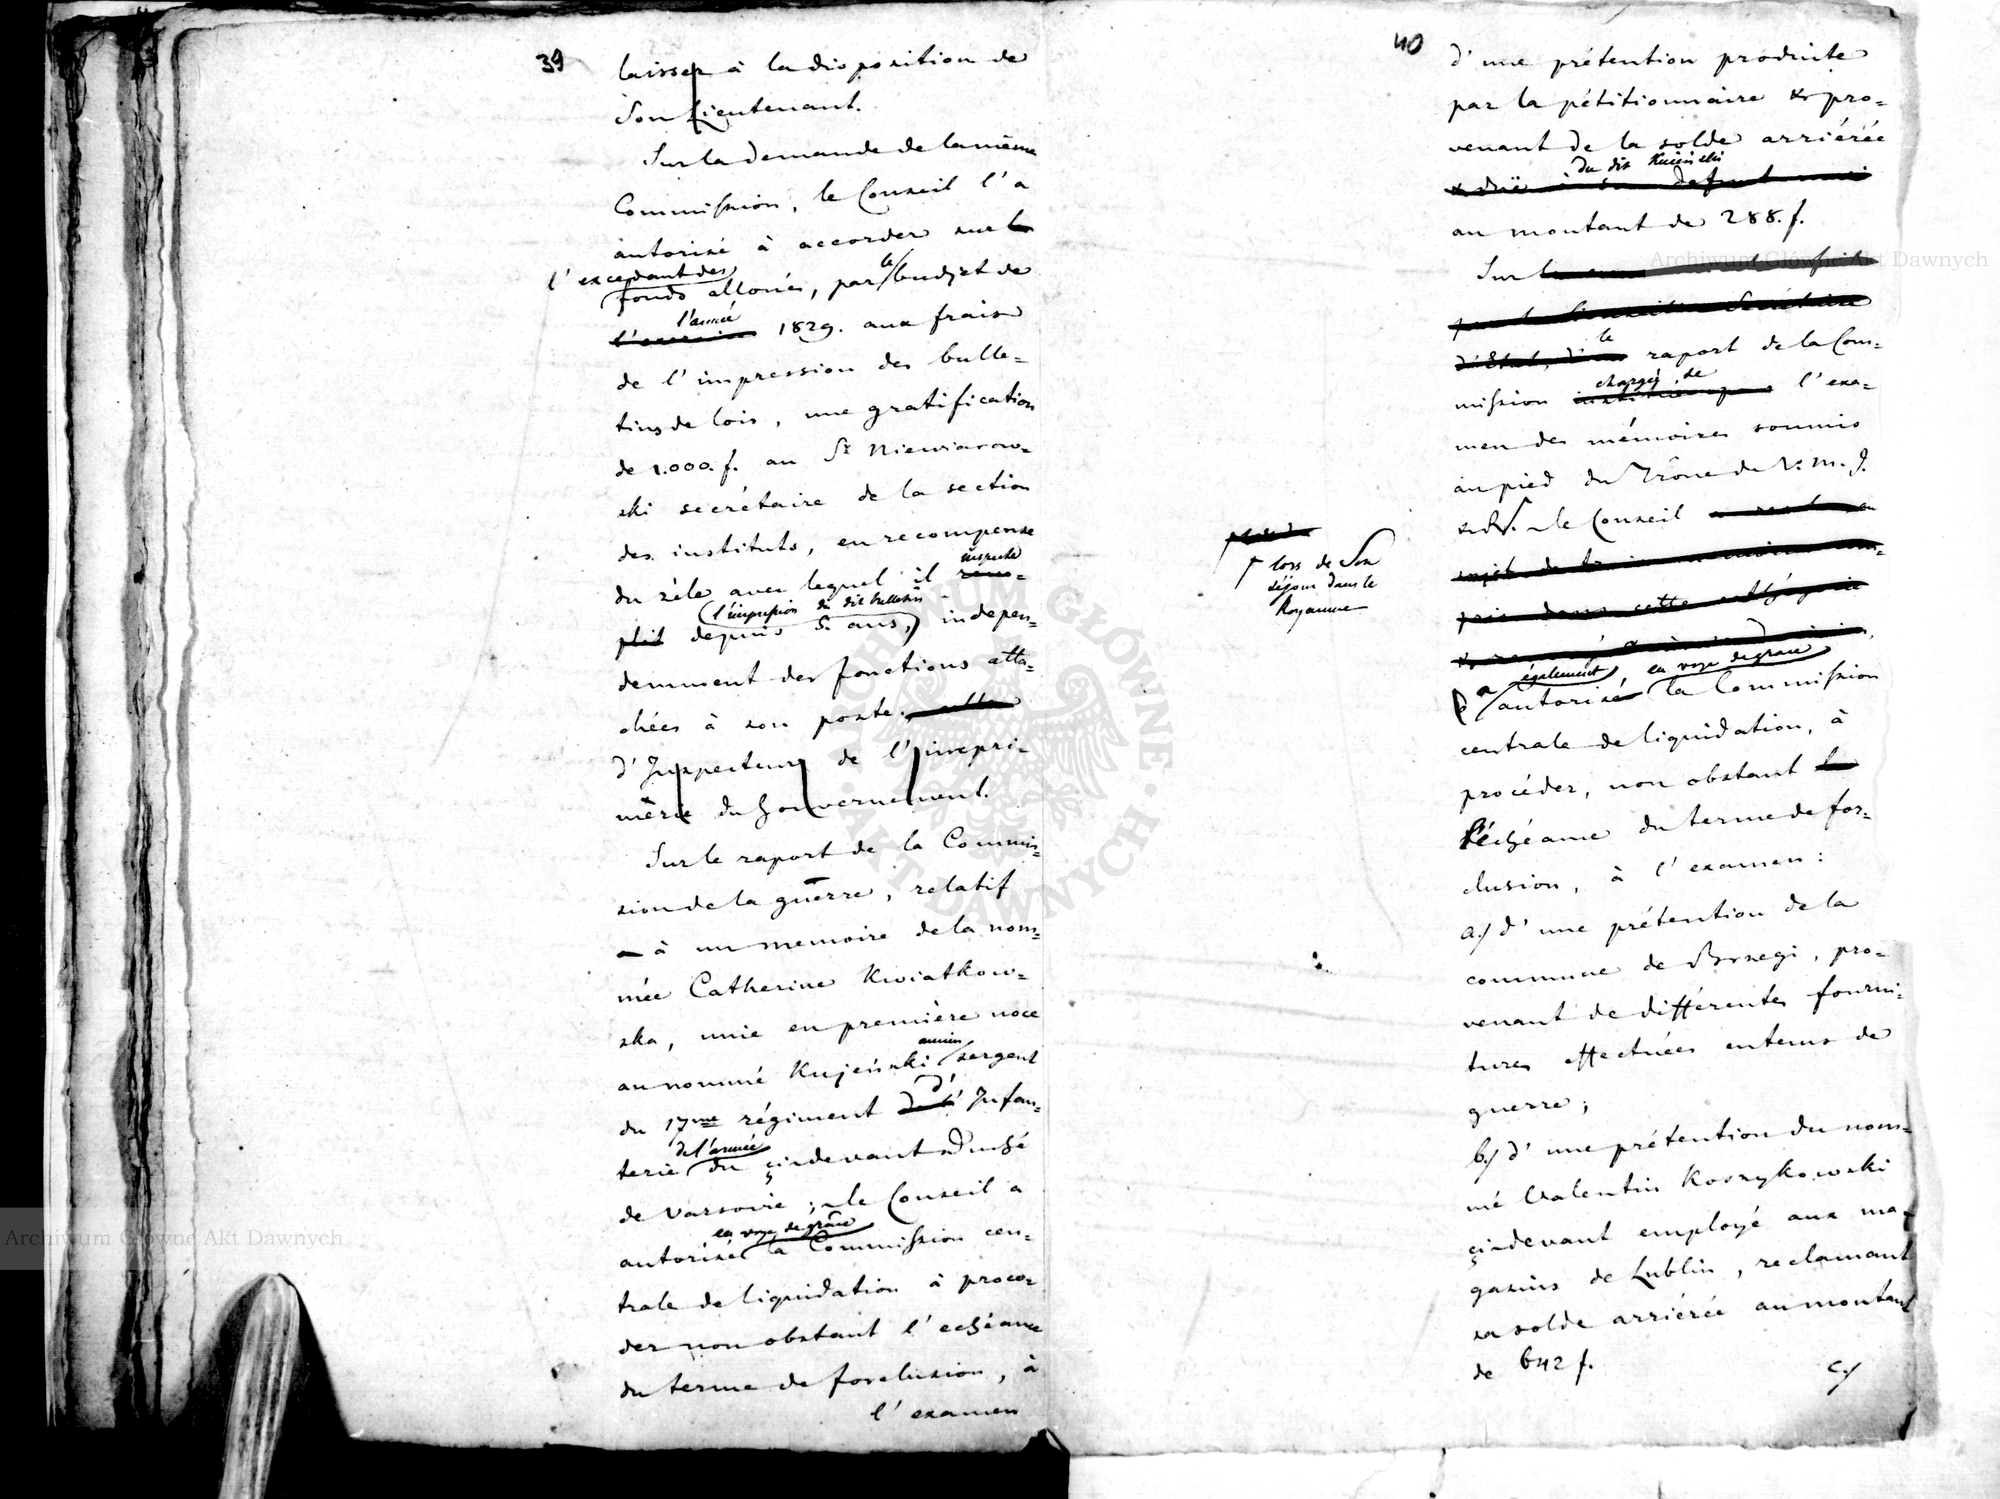 39
laisser à la disposition de
Son Lieutenant.
Sur la demande de la même
Commission, le Conseil l'a
autorisé à accorder sur le
l'excedant des
fonds alloués, par le budjet de
l'année
l'exercice 1829. aux frais
de l'impression des bulle=
tins de lois, une gratification
de 1.000. f. au Sr Niewiarow=
ski secrétaire de la section
des instituts, en recompense
du zèle avec lequel il
l'impression du dit bulletin
plit depuis 5. ans, indepen=
demment des fonctions atta=
chées à son poste.
d'Inspecteur de l'impri=
mèrie du Gouvernement.
Sur le raport de la Commis=
sion de la guerre, relatif
à un memoire de la nom=
mée Catherine Kwiatkow=
ska, unie en première noce
ancien
au nommé Kujeński sergent
du 17me régiment d' Infan=
de l'armée
terie du çi-devant Duché
de Varsovie; le Conseil a
en voye de grâce
autorisé la Commission cen=
trale de liquidation à procé=
der non obstant l'echéance
du terme de forclusion, à
l'examen
40
d'une prétention produite
par la pétitionnaire & pro=
venant de la solde arriérée
du dit Kujeński
au montant de 288. f.
Sur
le
d'Etat, raport de la Com=
chargée de
mission l'exa=
men des mémoires soumis
au pied du Trône de V. M. I.
le Conseil
lors de Son
séjour dans le
Royaume
également en voye de grace
a autorisé la Commission
centrale de liquidation, à
procéder, non obstant
l'échéance du terme de for=
clusion, à l'examen:
a.) d'une prétention de la
commune de Brzegi, pro=
venant de différentes fourni=
tures effectuées en tems de
guerre;
b.) d'une prétention du nom=
mé Valentin Koszykowski
çi-devant employé aux ma=
gasins de Lublin, reclamant
sa solde arriérée au montant
de 642 f.
c.)
Archiwum Główne Akt Dawnych
Archiwum Główne Akt Dawnych
ARCHIWUM GŁÓWNE
AKT DAWNYCH